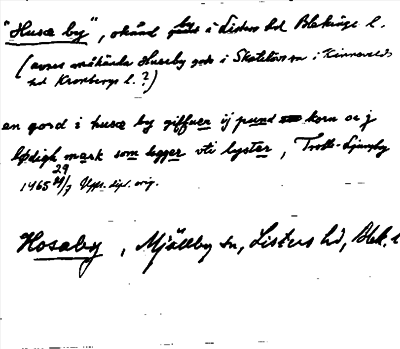 "Husæ by", okänd by i Listers hd Blekinge l.
(avses möjl. kända Huseby gods i Skatelövs sn i Kinnevalds
hd Kronobergs l. ?)
en gord i husæ by giffuer ij pund korn oc j
lødigh mark som legger vti lyster, Trolle-Ljungby
1465 29/7 dipl. orig.
Hosaby, Mjällby sn, Listers hd, Blek. l